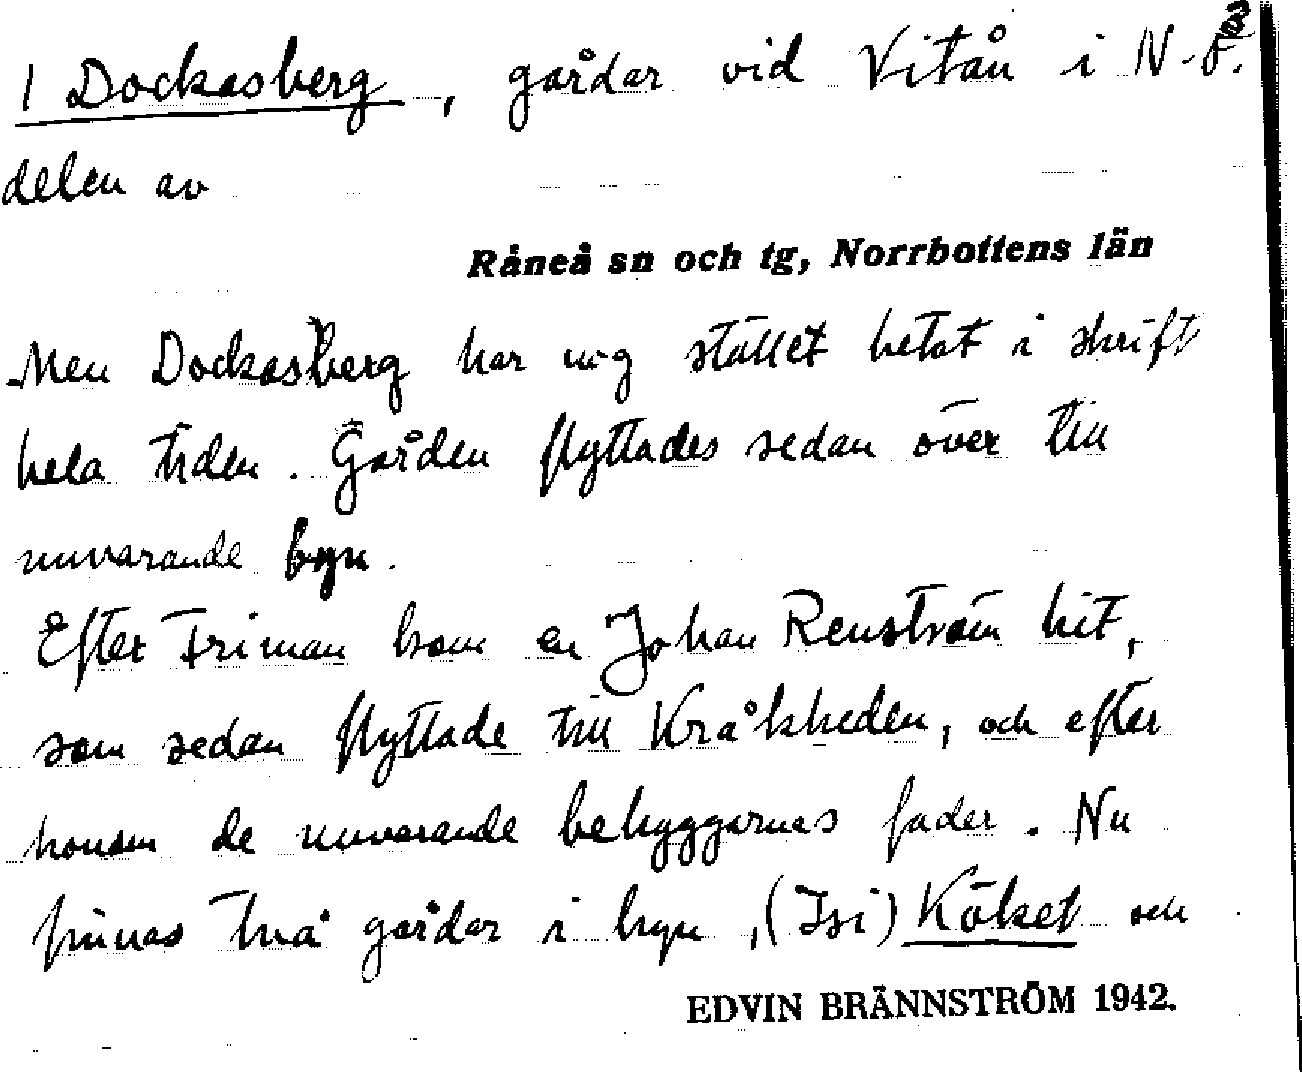 1 Dockasberg, gårdar vid Vitån i N.
delen av
Råneå sn och tg, Norrbottens län
Men Dockasberg har nog stället hetat i skrift
hela tiden. Gården flyttades sedan över till
nuvarande byn.
Efter Friman kom en Johan Renström hit,
som sedan flyttade till Kråkheden, och efter
honom de nuvarande bebyggarnas fader. Nu
finnas två gårdar i byn, (Isi) Köket och
EDVIN BRÄNNSTRÖM 1942.